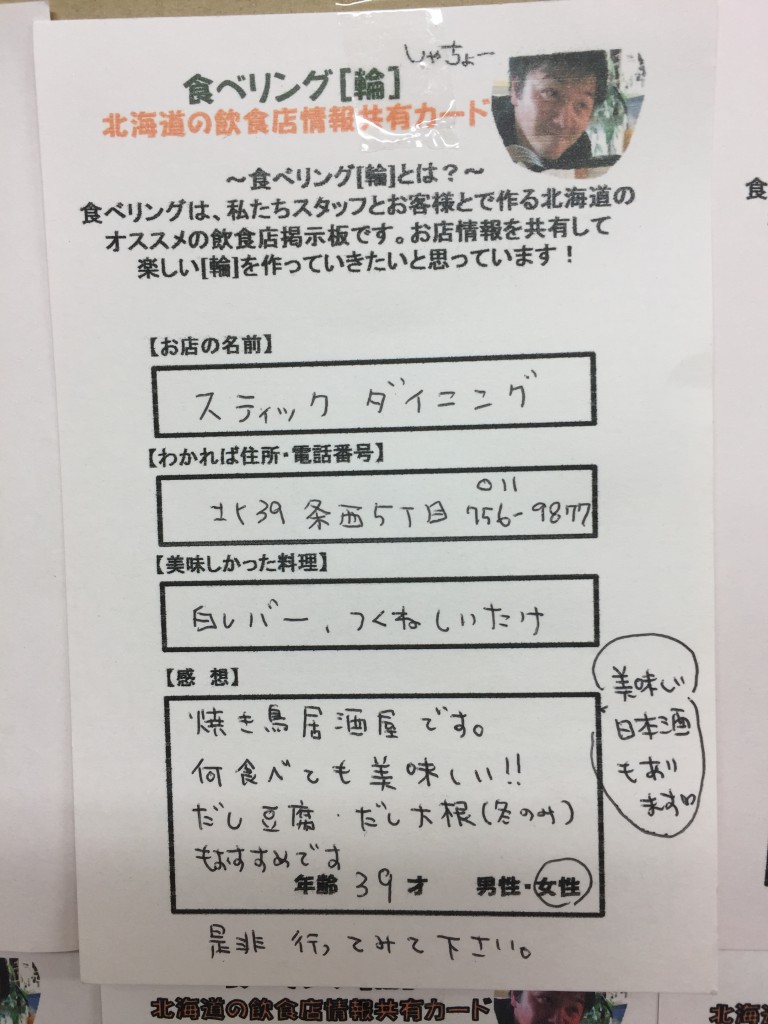 しゃちょー
食べリング[輪]
北海道の飲食店情報共有カード
～食べリング[輪]とは？～
食べリングは、私たちスタッフとお客様とで作る北海道の
オススメの飲食店掲示板です。お店情報を共有して
楽しい[輪]を作っていきたいと思っています！
【お店の名前】
スティック ダイニング
【わかれば住所・電話番号】
011
北39条西5丁目 756-9877
【美味しかった料理】
白レバー、つくねしいたけ
【感 想】
焼き鳥居酒屋です。
何食べても美味しい!!
だし豆腐・だし大根(冬のみ)
もおすすめです
年齢 39 才 男性・女性
美味しい
日本酒
もあり
ます。
是非 行ってみて下さい。
食
北海道の飲食店情報共有カード
北海